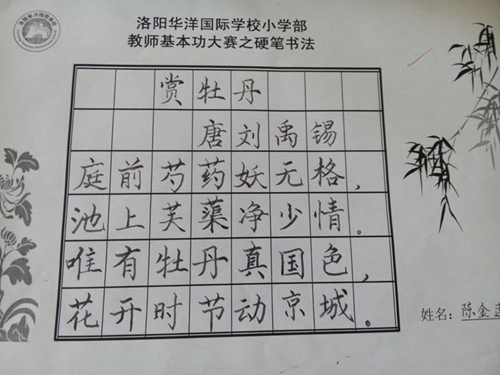 洛阳华洋国际学校小学部
教师基本功大赛之硬笔书法
赏牡丹
唐刘禹锡
庭前芍药妖无格，
池上芙蕖净少情。
唯有牡丹真国色，
花开时节动京城。
姓名：陈金